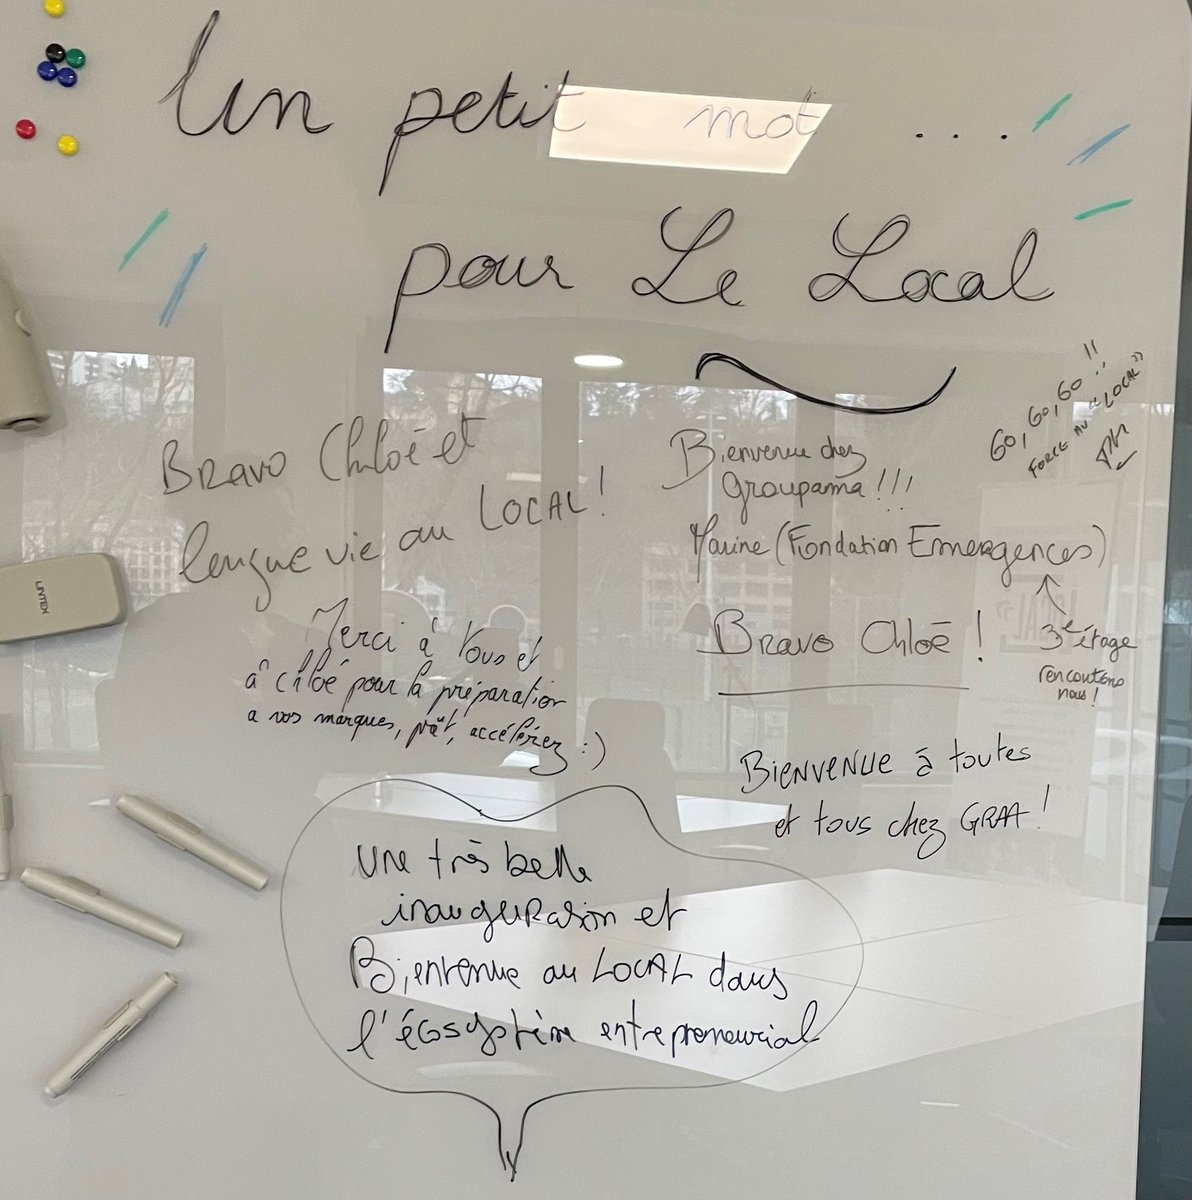 Un petit mot ....
pour Le Local
GO, GO, GO !!
FORCE AU "LOCAL"
Bravo Chloé et
longue vie au LOCAL !
Bienvenue chez
Groupama !!!
Marine (Fondation Emergences)
3e étage
rencontrons
nous !
Bravo Chloé !
Merci à tous et
à Chloé pour la préparation
a vos marques, prêt, accélérez :)
BIENVENUE à toutes
et tous chez GRAA !
Une très belle
inauguration et
Bienvenue au LOCAL dans
l'écosystème entrepreneurial
LINTEX